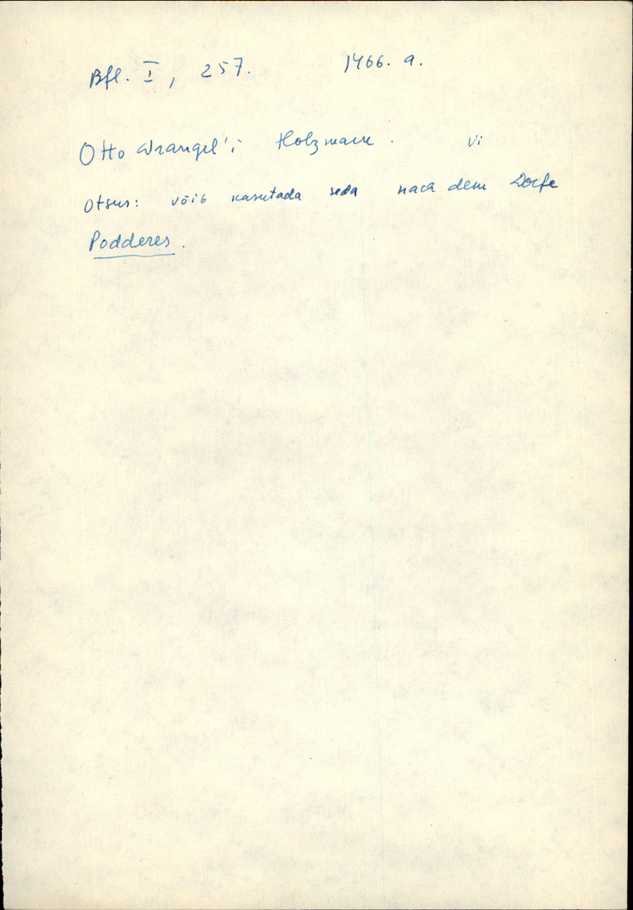 Bfl. I, 257. 1466. a.
Otto Wrangel'i Holzmark. Vi
Otsus: võib kasutada seda nach dem Dorfe
Podderes.